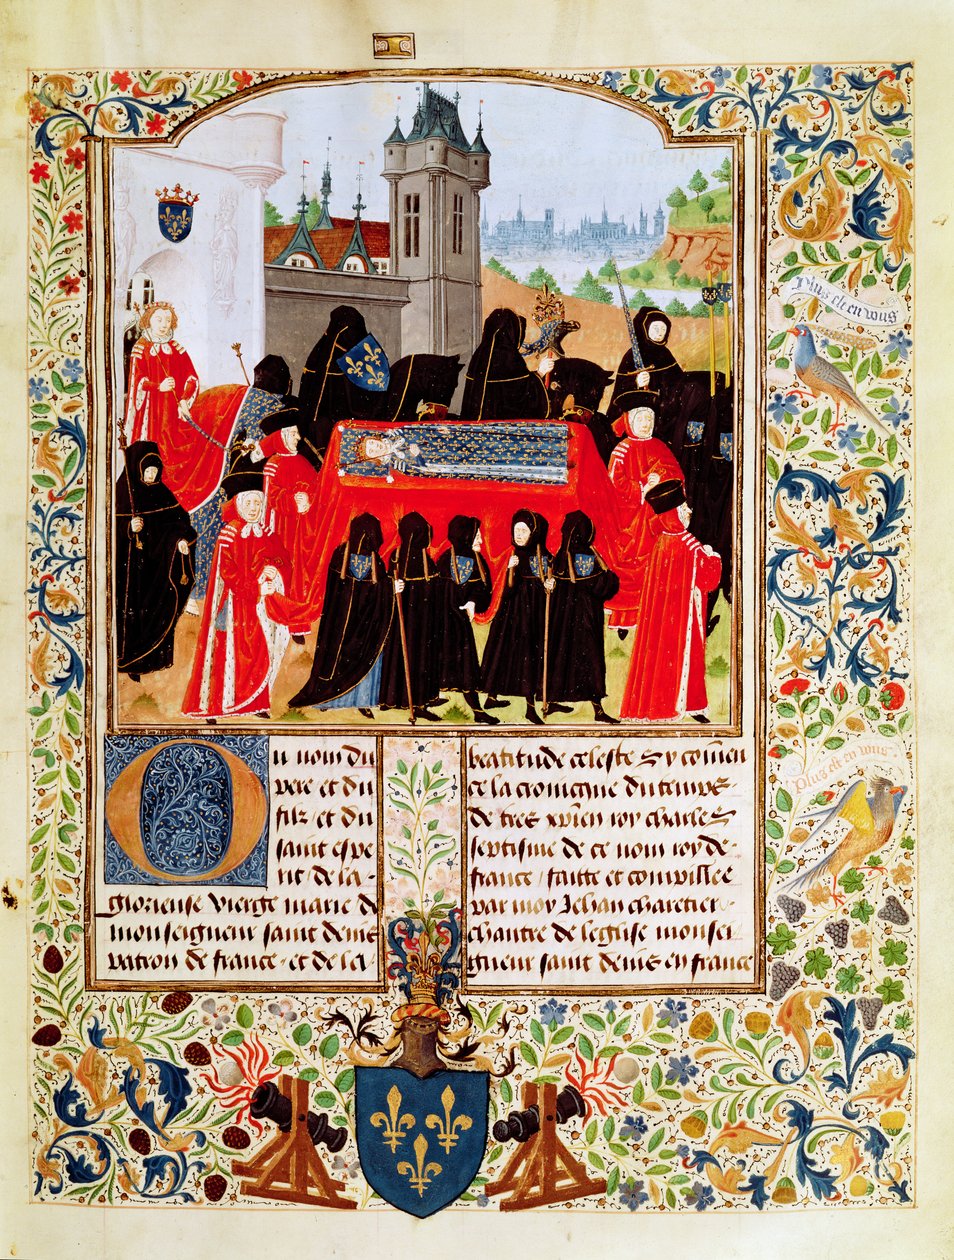 Plus est en vus
Plus est en wus
Ou nom du
pere et du
filz et du
saint espe
rit de la
glorieuse vierge marie de
monseigneur saint denis
patron de france et de la
beatitude celeste Sy comen
ce la cronicque du temps
de tres xpien roy charles
septisme de ce nom roy de
france / faitte et compillee
par moy Jehan charetier
chantre de leglise monsei
gneur saint denis en france